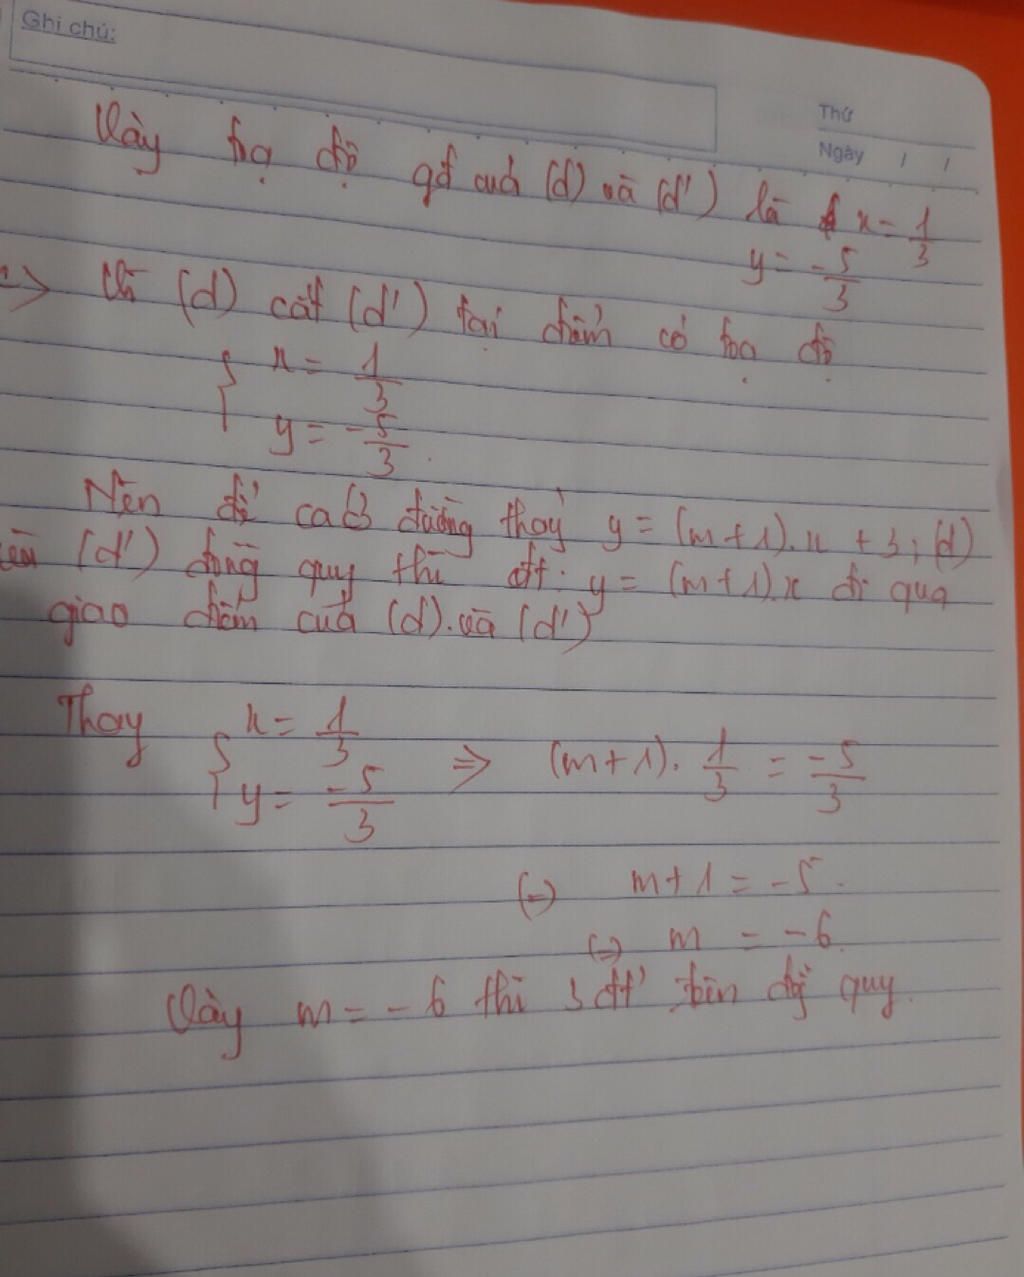 Ghi chú:
Thứ
Ngày / /
Vậy toạ độ gđ của (d) và (d') là x = 1/3
y = -5/3
c) Vì (d) cắt (d') tại điểm có toạ độ
{ x = 1/3
y = -5/3.
Nên để cả 3 đường thẳng y = (m+1).x + 3; (d)
và (d') đồng quy thì đt: y = (m+1).x đi qua
giao điểm của (d).và (d')
Thay { x = 1/3
y = -5/3 => (m+1). 1/3 = -5/3
(=) m+1 = -5.
(=) m = -6.
Vậy m = -6 thì 3 đt trên đq quy.